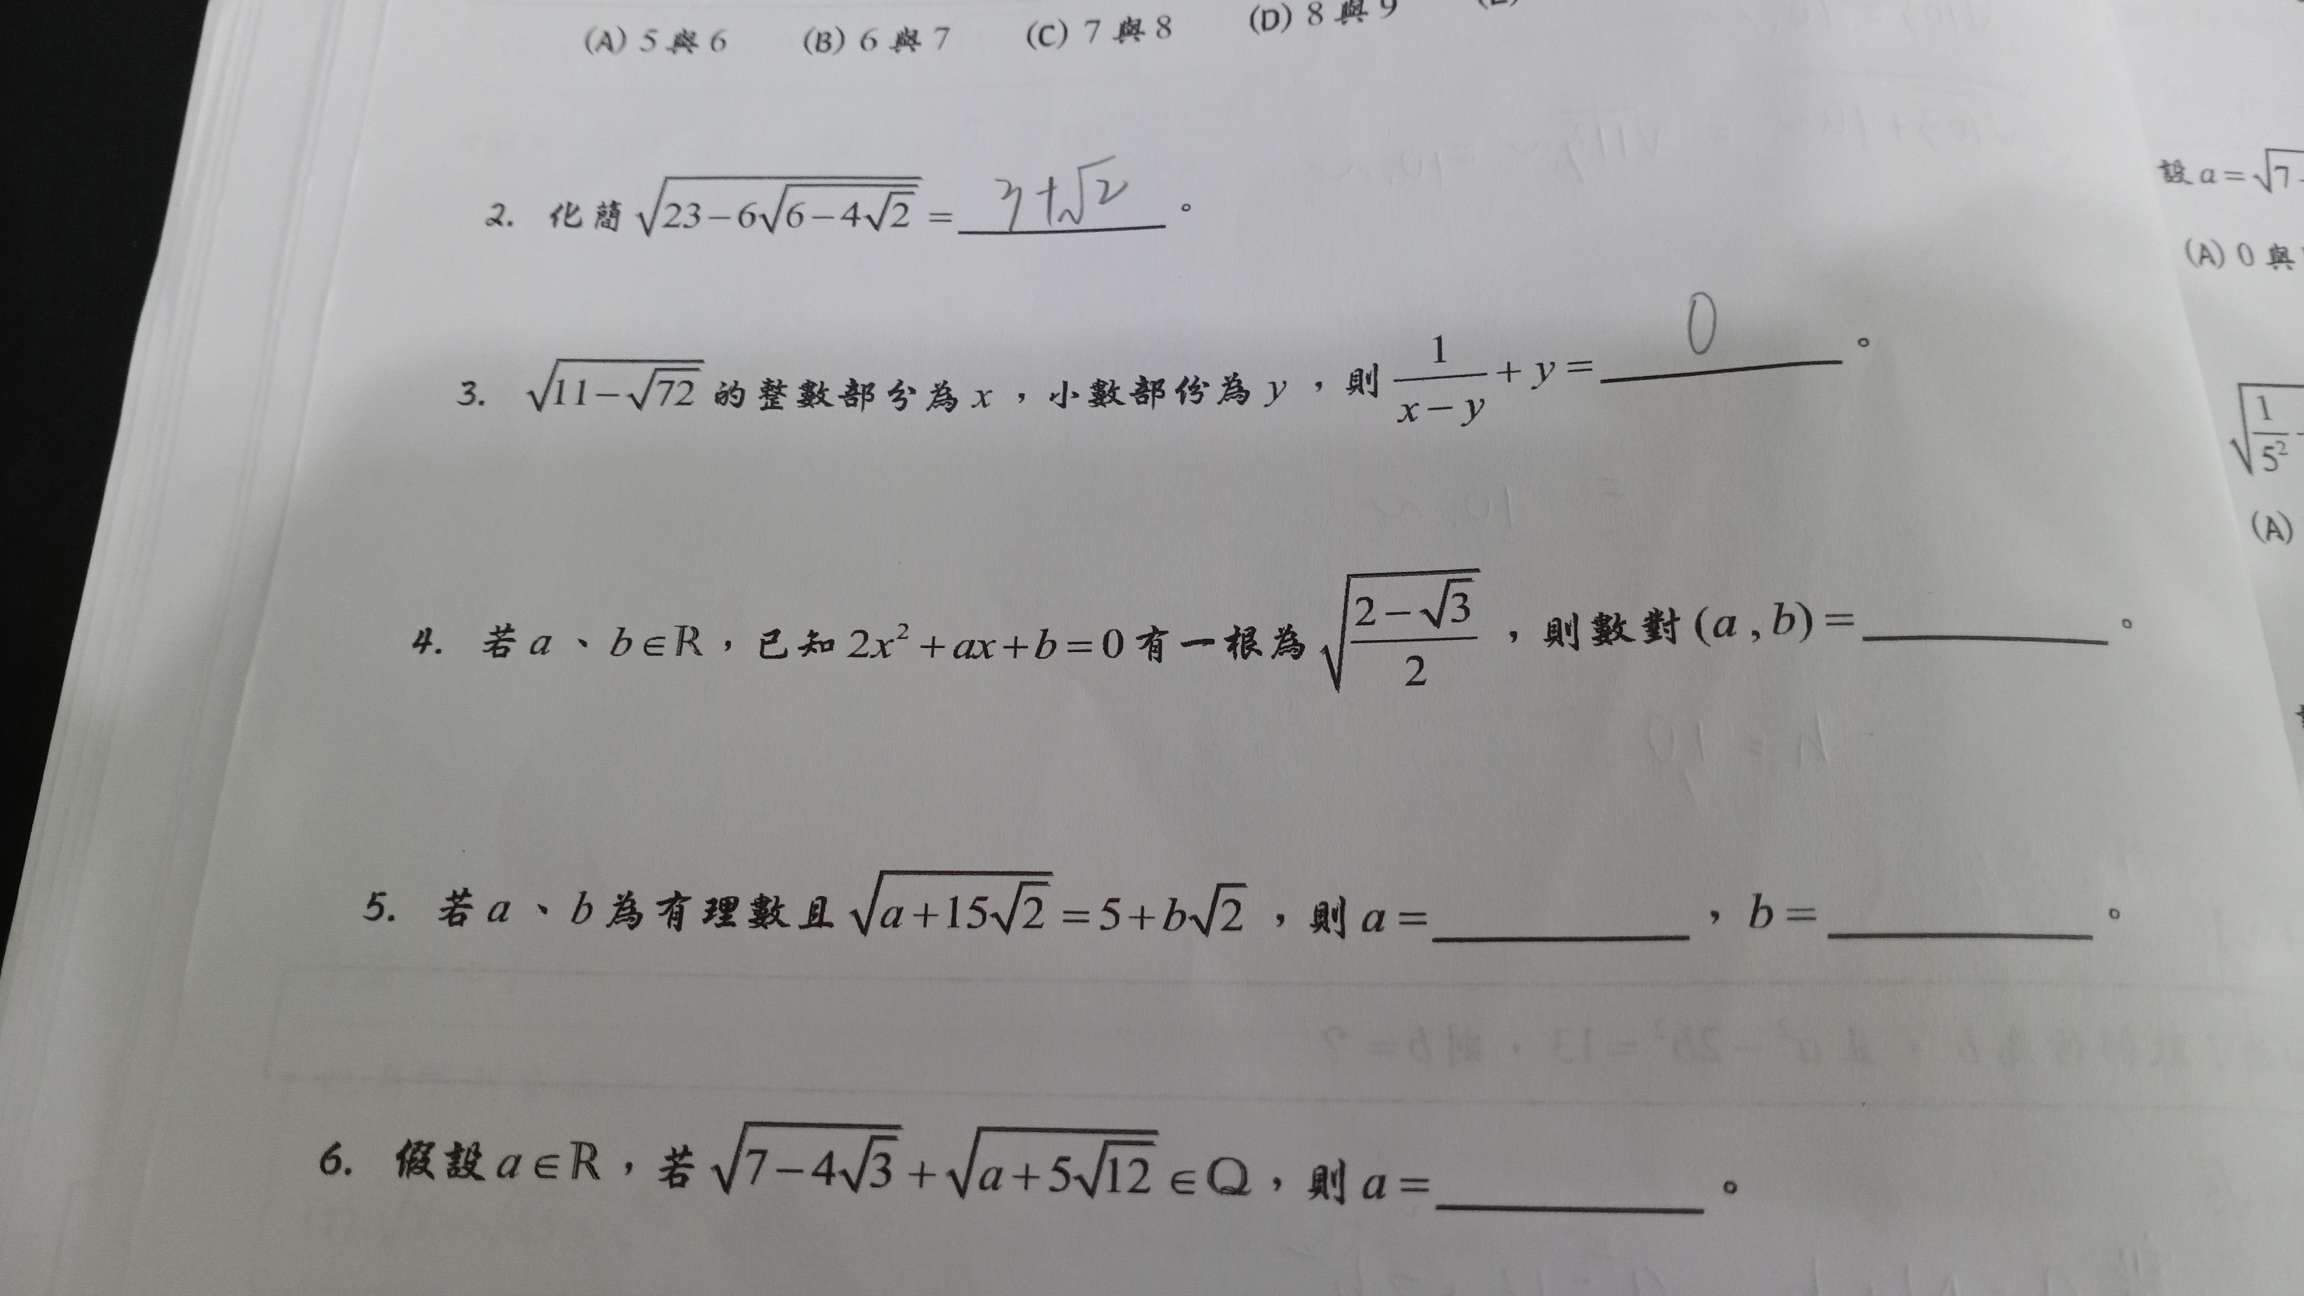 (A) 5 與 6 (B) 6 與 7 (C) 7 與 8 (D) 8 與 9
2. 化簡 √(23−6√(6−4√2)) = 3+√2 。
設 a = √7
(A) 0 與
3. √(11−√72) 的整數部分為 x，小數部份為 y，則 1/(x−y) + y = 0 。
1/5²
(A)
4. 若 a、b∈ℝ，已知 2x²+ax+b=0 有一根為 √((2−√3)/2)，則數對 (a , b) = 。
5. 若 a、b 為有理數且 √(a+15√2) = 5+b√2，則 a = ，b = 。
6. 假設 a∈ℝ，若 √(7−4√3) + √(a+5√12) ∈ℚ，則 a = 。